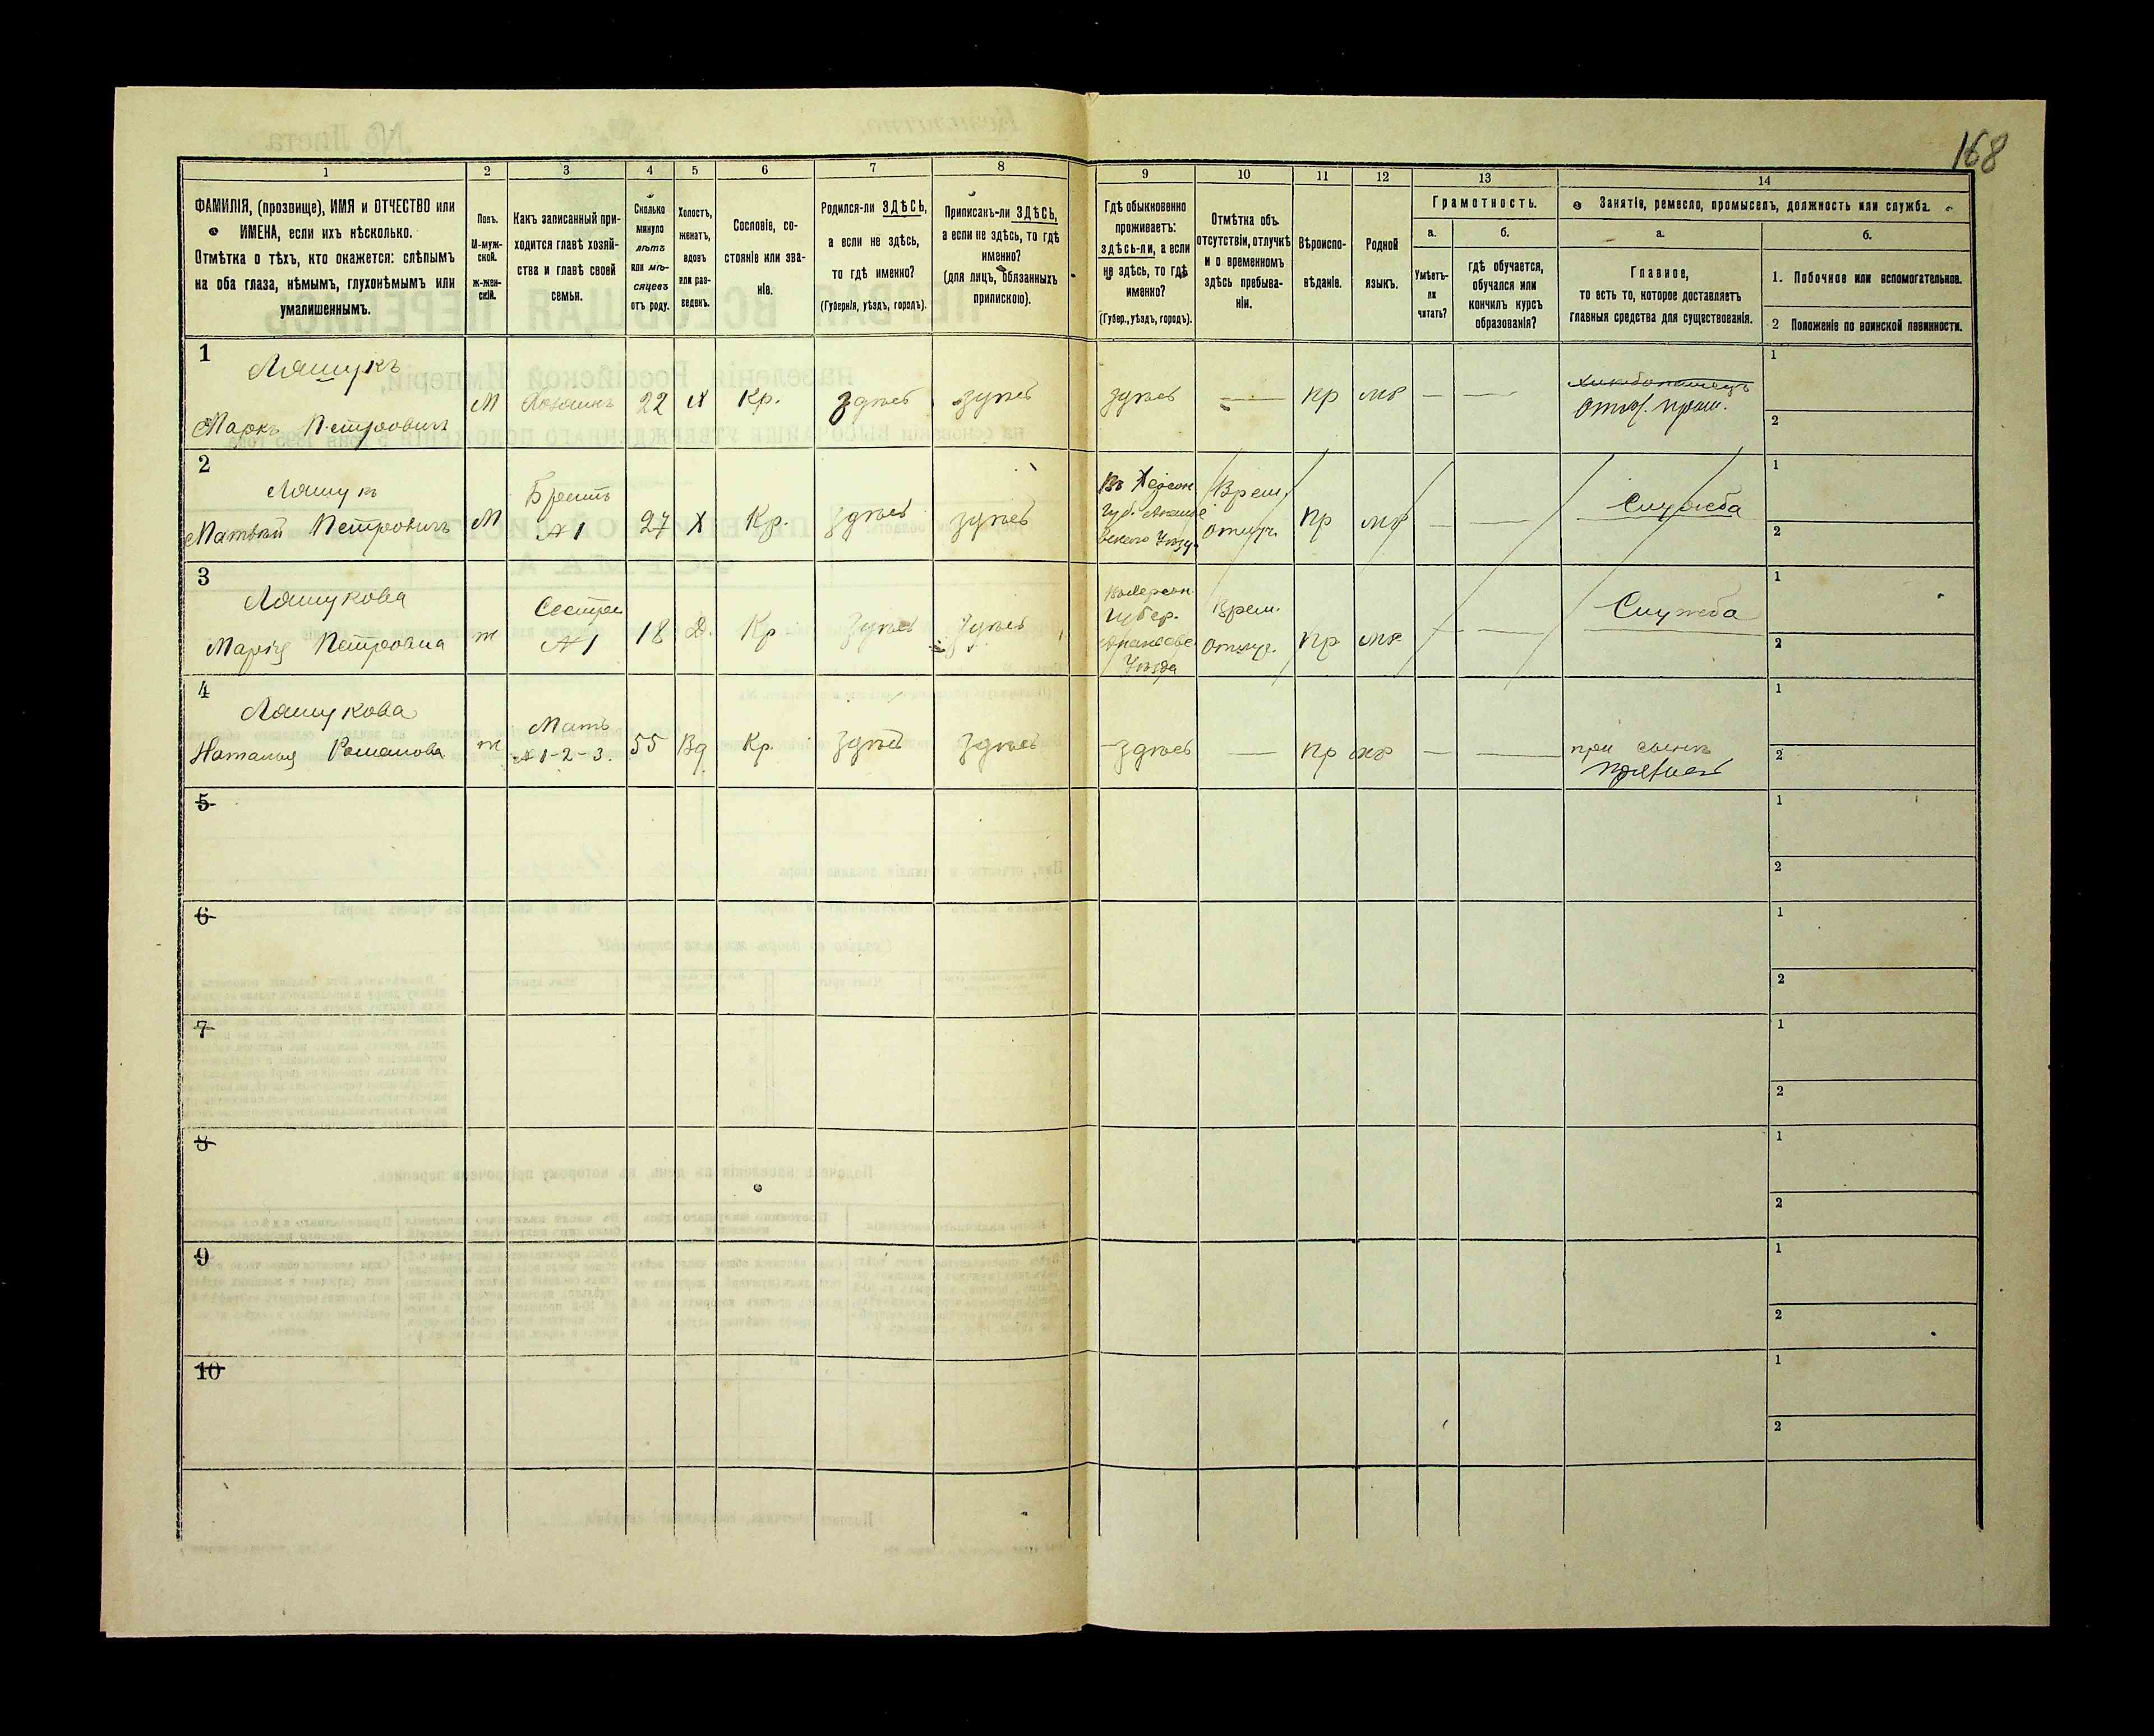 168
1 2 3 4 5 6 7 8 9 10 11 12 13 14
ФАМИЛІЯ, (прозвище), ИМЯ и ОТЧЕСТВО или
ИМЕНА, если ихъ нѣсколько.
Отмѣтка о тѣхъ, кто окажется: слѣпымъ
на оба глаза, нѣмымъ, глухонѣмымъ или
умалишеннымъ.
Полъ.
М-муж-
ской.
ж-жен-
скій.
Какъ записанный при-
ходится главѣ хозяй-
ства и главѣ своей
семьи.
Сколько
минуло
лѣтъ
или мѣ-
сяцевъ
отъ роду.
Холостъ,
женатъ,
вдовъ
или раз-
веденъ.
Сословіе, со-
стояніе или зва-
ніе.
Родился-ли ЗДѢСЬ,
а если не здѣсь,
то гдѣ именно?
(Губернія, уѣздъ, городъ).
Приписанъ-ли ЗДѢСЬ,
а если не здѣсь, то гдѣ
именно?
(для лицъ, обязанныхъ
припискою).
Гдѣ обыкновенно
проживаетъ:
здѣсь-ли, а если
не здѣсь, то гдѣ
именно?
(Губер., уѣздъ, городъ).
Отмѣтка объ
отсутствіи, отлучкѣ
и о временномъ
здѣсь пребыва-
ніи.
Вѣроиспо-
вѣданіе.
Родной
языкъ.
Грамотность.
а.
Умѣетъ-
ли
читать?
б.
гдѣ обучается,
обучался или
кончилъ курсъ
образованія?
Занятіе, ремесло, промыселъ, должность или служба.
а.
Главное,
то есть то, которое доставляетъ
главныя средства для существованія.
б.
1. Побочное или вспомогательное.
2 Положеніе по воинской повинности.
1
Ляшукъ
Маркъ Петровичъ
М
Хозяинъ
22
Х
Кр.
здѣсь
здѣсь
здѣсь
—
пр
мр
—
—
1
2
2
Ляшукъ
Матвѣй Петровичъ
М
Братъ
№ 1
27
Х
Кр.
здѣсь
здѣсь
Въ Херсон
Губ.
Врем.
отлуч.
пр
мр
—
—
Служба
1
2
3
Ляшукова
Марія Петровна
ж
Сестра
№ 1
18
Д.
Кр
здѣсь
здѣсь
Губер.
Уѣзда
Врем.
отлуч.
пр
мр
—
—
Служба
1
2
4
Ляшукова
Наталья Романова
ж
Мать
№ 1-2-3.
55
Вд
Кр.
здѣсь
здѣсь
здѣсь
—
пр
мр
—
—
при сынѣ
1
2
5
1
2
6
1
2
7
1
2
8
1
2
9
1
2
10
1
2